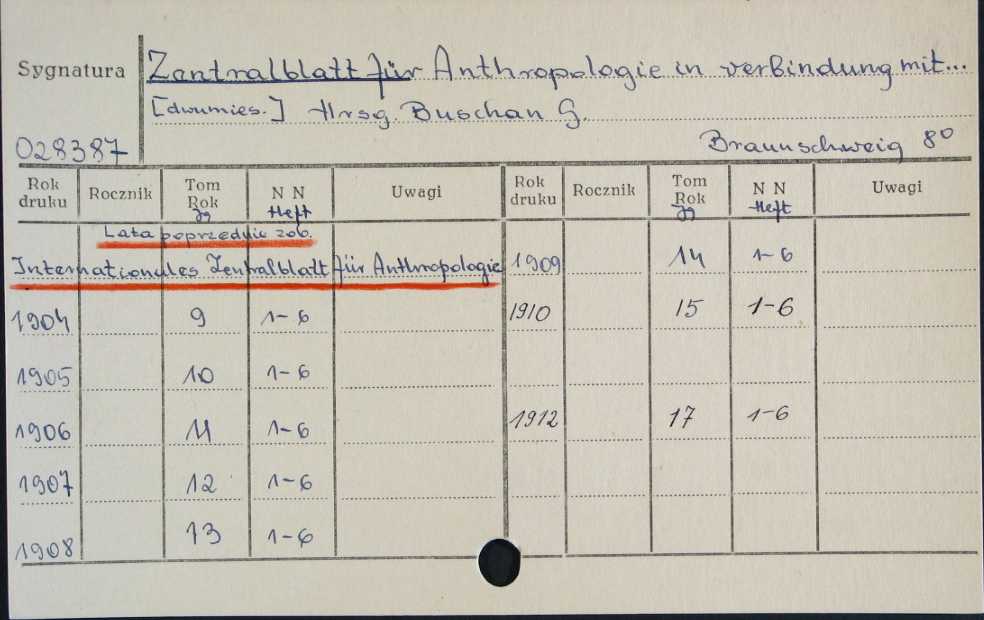 Sygnatura Zentralblatt für Anthropologie in verbindung mit...
[dwumies.] Hrsg. Buschan G.
028387 Braunschweig 8°
Rok druku Rocznik Tom Rok Jg N N Heft Uwagi Rok druku Rocznik Tom Rok Jg N N Heft Uwagi
Lata poprzednie zob.
Internationales Zentralblatt für Anthropologie 1909 14 1-6
1904 9 1-6 1910 15 1-6
1905 10 1-6
1906 11 1-6 1912 17 1-6
1907 12 1-6
1908 13 1-6